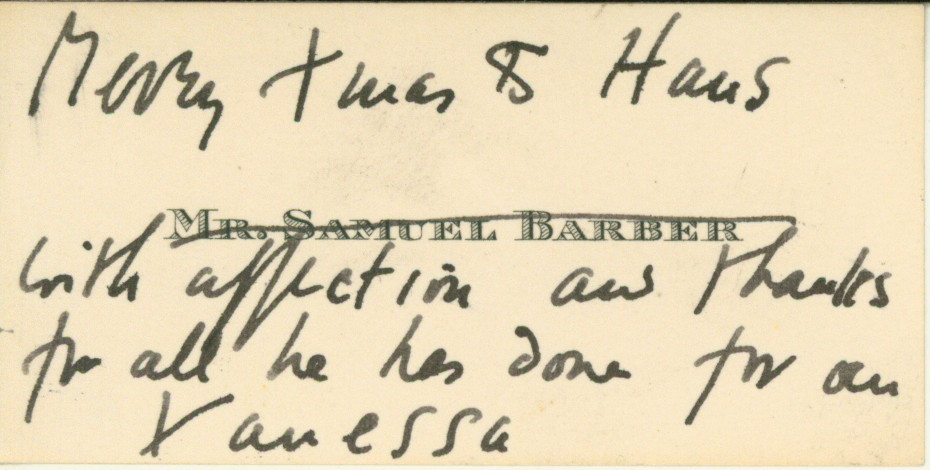 Merry Xmas to Hans
MR. SAMUEL BARBER
with affection and thanks
for all he has done for our
Vanessa